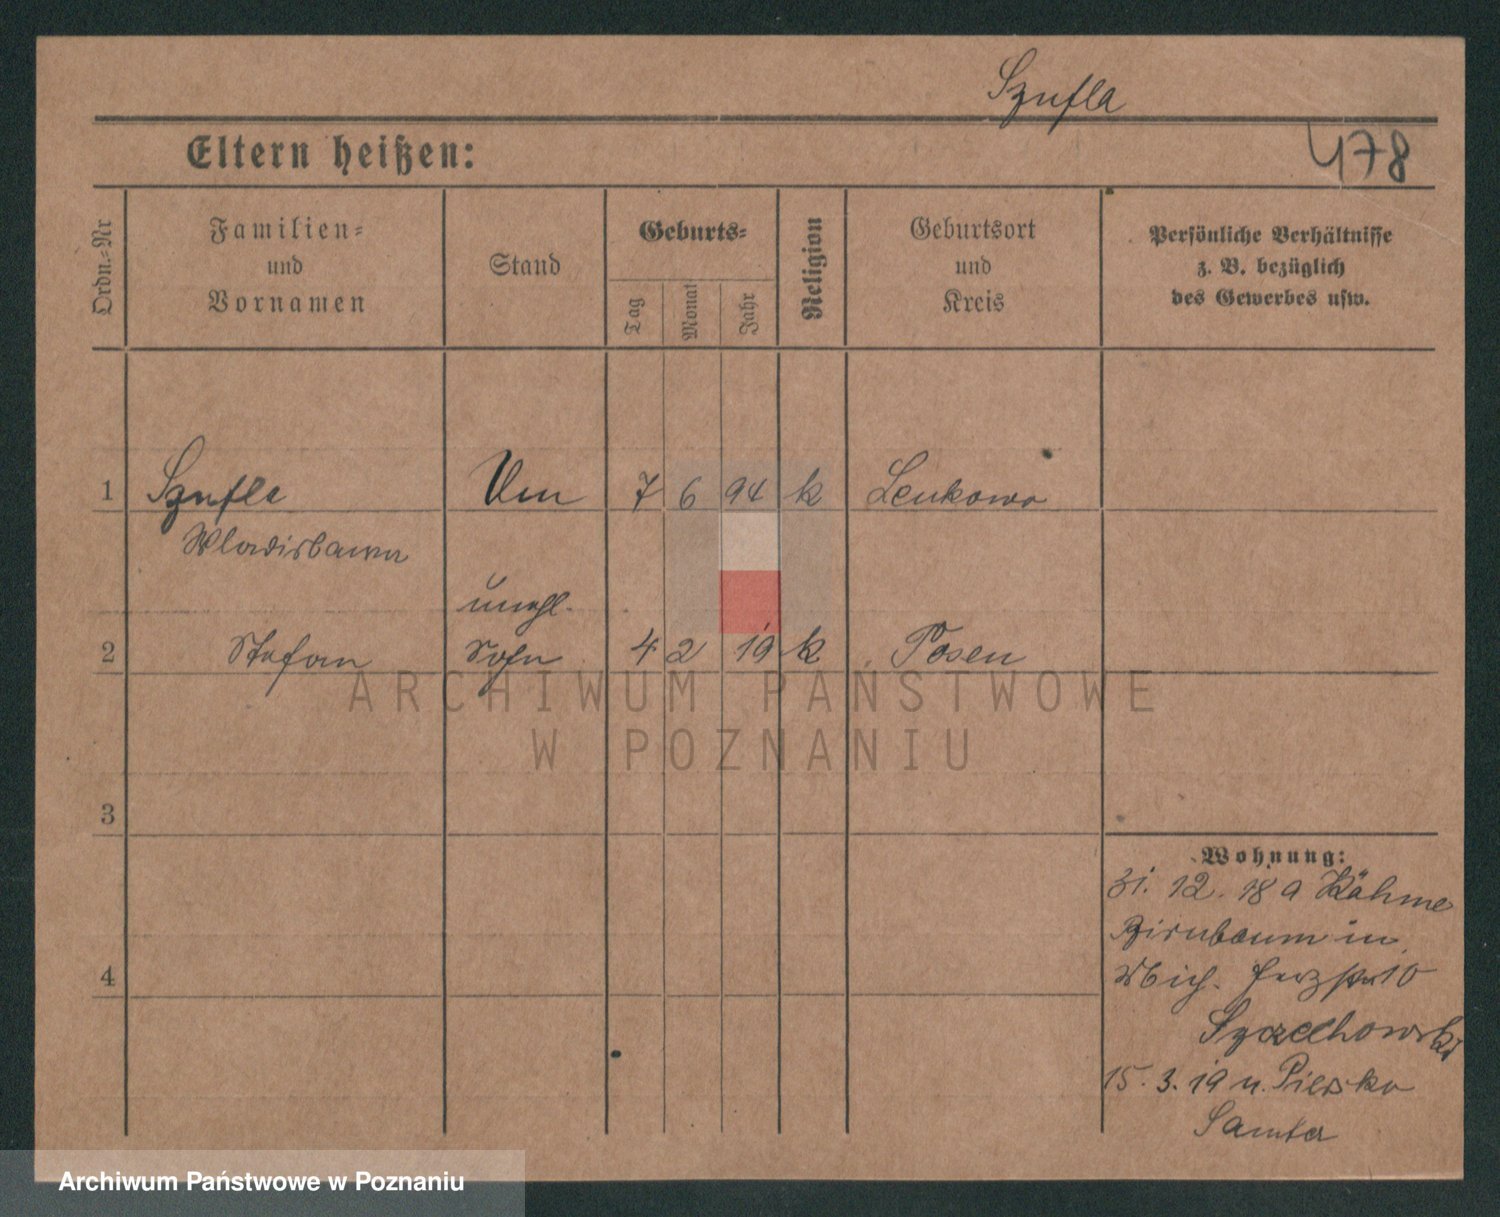 Szufla
Eltern heißen:
478
Ordn.-Nr
Familien-
und
Vornamen
Stand
Geburts-
Tag
Monat
Jahr
Religion
Geburtsort
und
Kreis
Persönliche Verhältnisse
z. B. bezüglich
des Gewerbes usw.
1 Szufla 7 6 94 k Lenkowo
Wladislawa
unehl.
2 Stefan Sohn 4 2 19 k Posen
3
4
Wohnung:
31. 12. 18 a Kähme
Birnbaum in
10
15. 3. 19 n. Piersko
Samter
ARCHIWUM PAŃSTWOWE
W POZNANIU
Archiwum Państwowe w Poznaniu